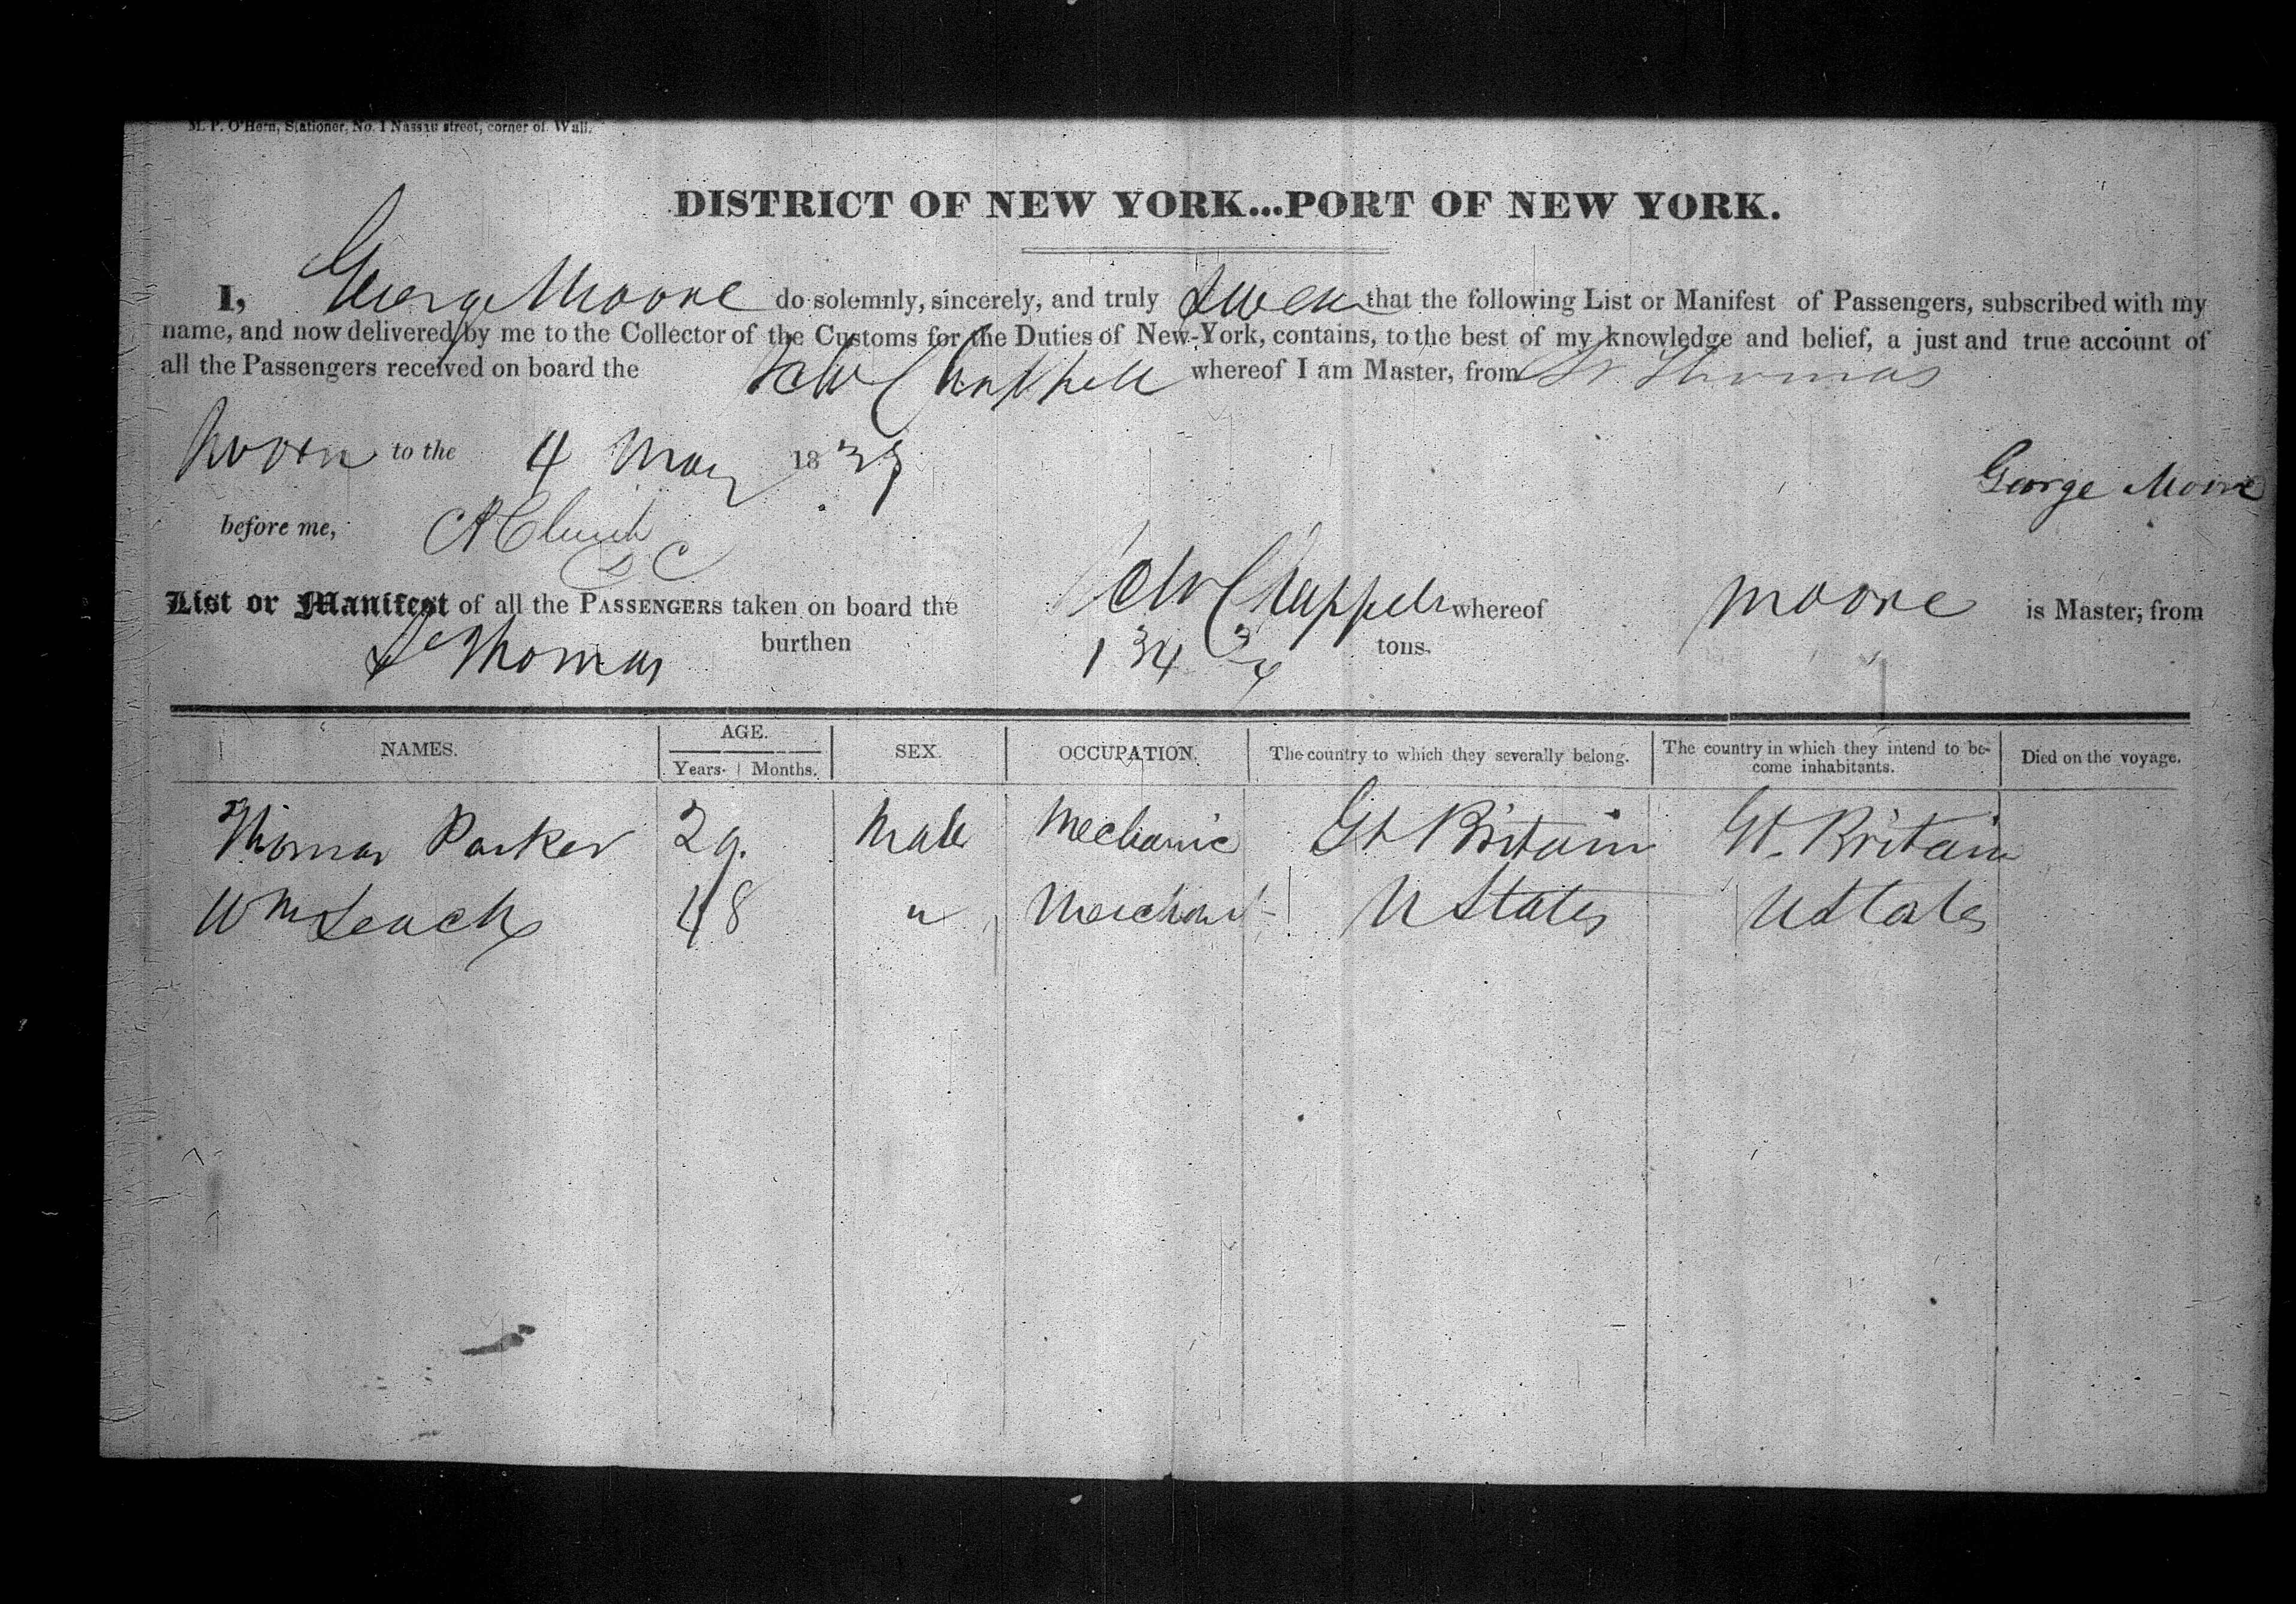 M. P. O'Hern, Stationer, No. 1 Nassau street, corner of Wall.
DISTRICT OF NEW YORK...PORT OF NEW YORK.
I, George Moore do solemnly, sincerely, and truly Swear that the following List or Manifest of Passengers, subscribed with my
name, and now delivered by me to the Collector of the Customs for the Duties of New-York, contains, to the best of my knowledge and belief, a just and true account of
all the Passengers received on board the Schr Chappell whereof I am Master, from St Thomas
Sworn to the 4 May 1839
George Moore
before me,
List or Manifest of all the PASSENGERS taken on board the Schr Chappell whereof Moore is Master, from
St Thomas burthen 134 tons.
NAMES. AGE. SEX. OCCUPATION. The country to which they severally belong. The country in which they intend to be- Died on the voyage.
Years. Months. come inhabitants.
Thomas Parker 29. Male Mechanic Gt Britain Gt. Britain
Wm Leach 48 " Merchant U States U States